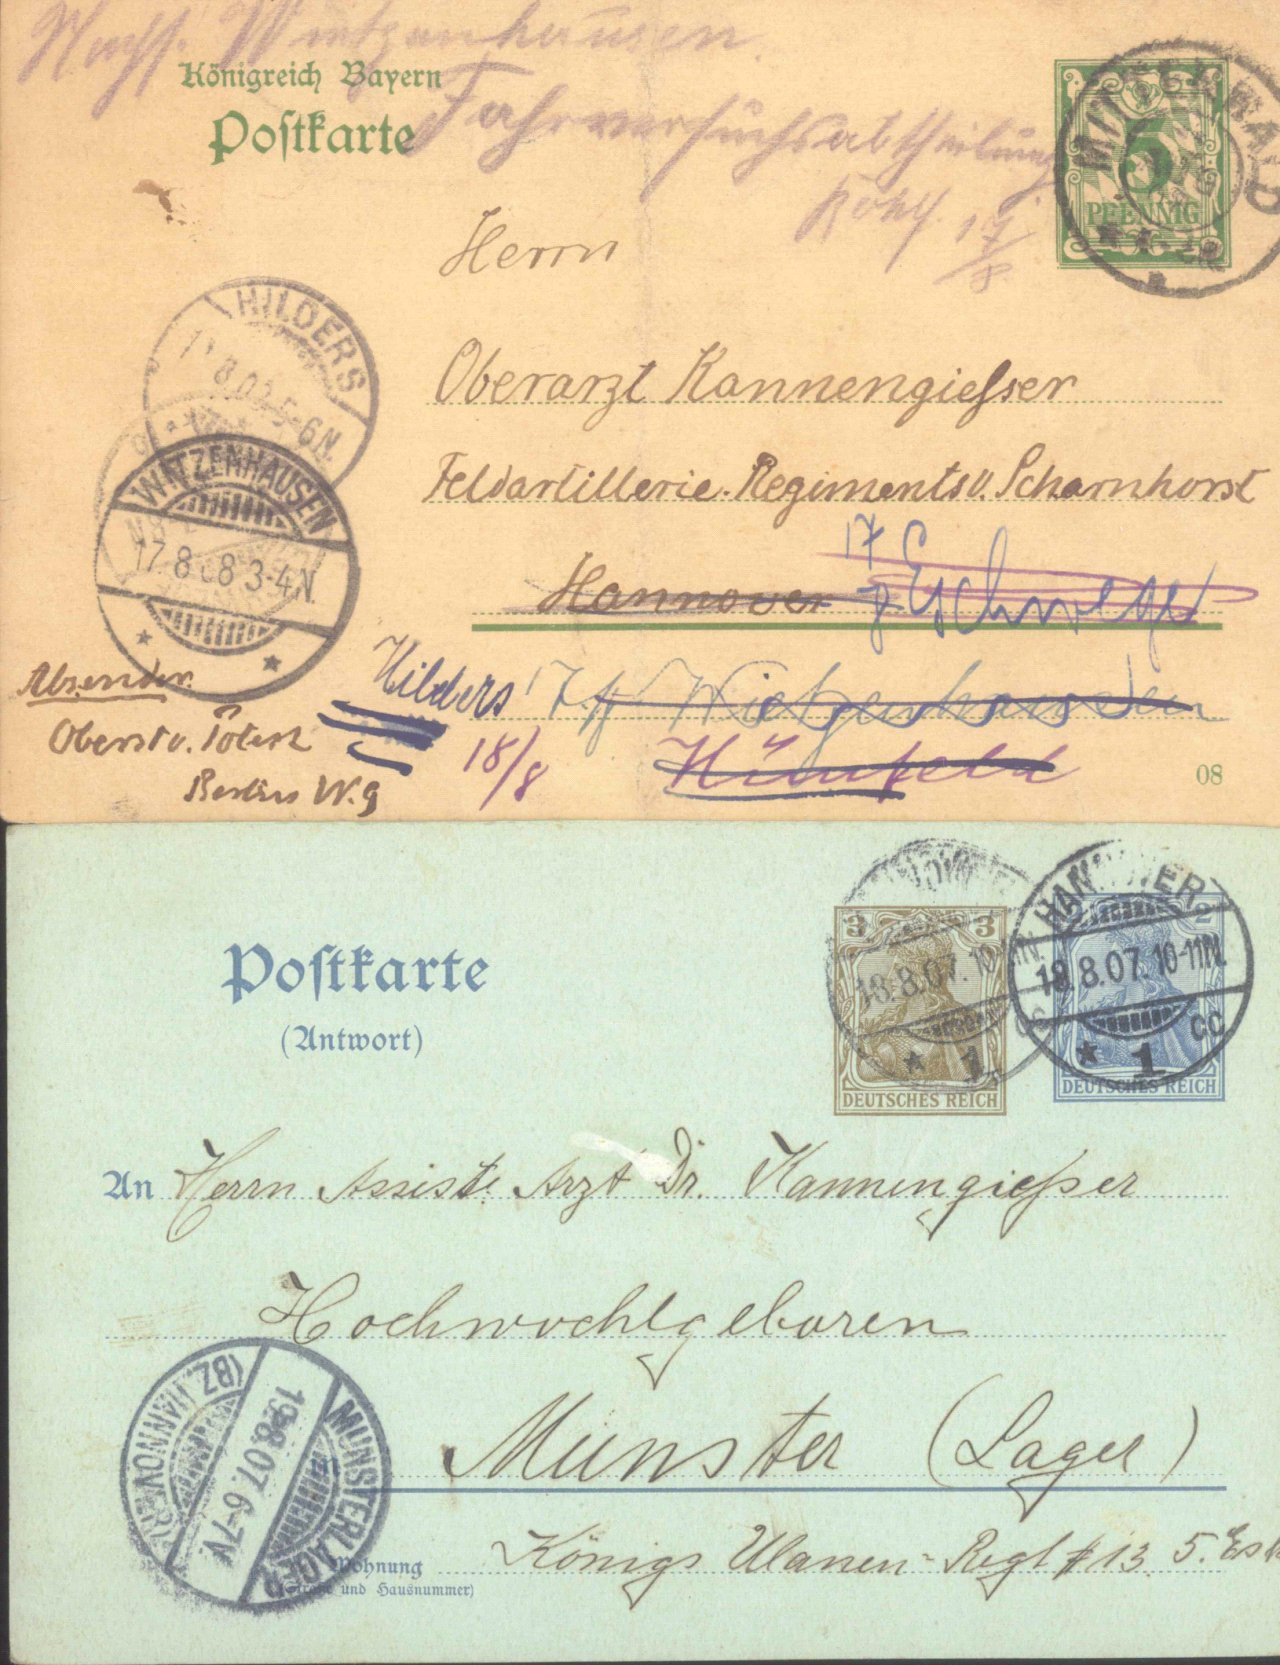 Nach Witzenhausen.
Königreich Bayern
Postkarte
Fahrversuchsabtheilung
17/8
5
PFENNIG
MITTENWALD
Herrn
HILDERS
8.08 5-6N.
Oberarzt Kannengiesser
WITZENHAUSEN
17 8 08 3-4.N.
Feldartillerie-Regiments v. Scharnhorst
Hannover Eschwege
Hilders Witzenhausen
18/8
Hünfeld
Absender.
Oberst v.
Berlin W. 9
08
Postkarte
(Antwort)
3 3
DEUTSCHES REICH
18.8.07. 10
1
2
DEUTSCHES REICH
HANNOVER
18.8.07. 10-11N.
* 1 cc
An Herrn Assist. Arzt Dr. Kannengiesser
Hochwohlgeboren
Munster (Lager)
MUNSTERLAGER
(BZ. HANNOVER)
19.8.07. 6-7V.
Wohnung
(Straße und Hausnummer)
Königs Ulanen-Regt # 13. 5. Esk